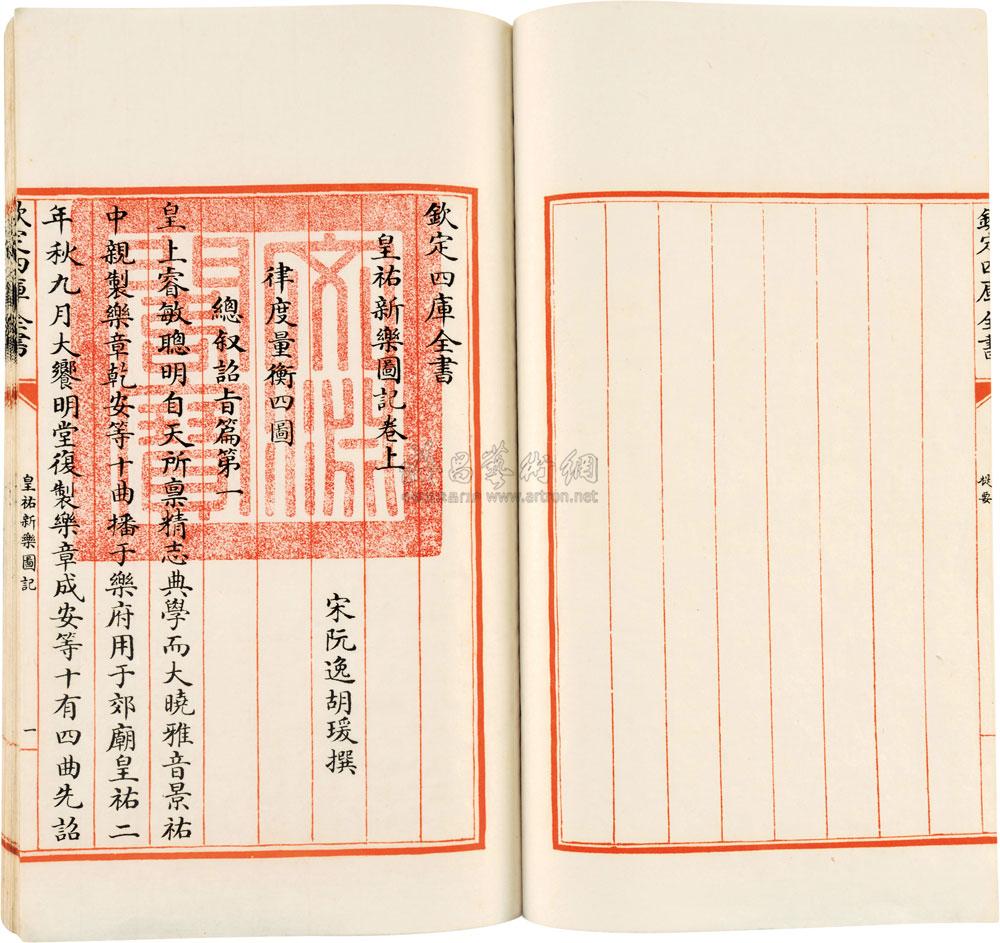 欽定四庫全書
提要
欽定四庫全書
皇祐新樂圖記卷上
宋阮逸胡瑗撰
律度量衡四圖
總叙詔旨篇第一
皇上睿敏聰明自天所禀精志典學而大曉雅音景祐
中親製樂章乾安等十曲播于樂府用于郊廟皇祐二
年秋九月大饗明堂復製樂章成安等十有四曲先詔
欽定四庫全書
皇祐新樂圖記
一
文淵閣寶
藝術網
www.artron.net